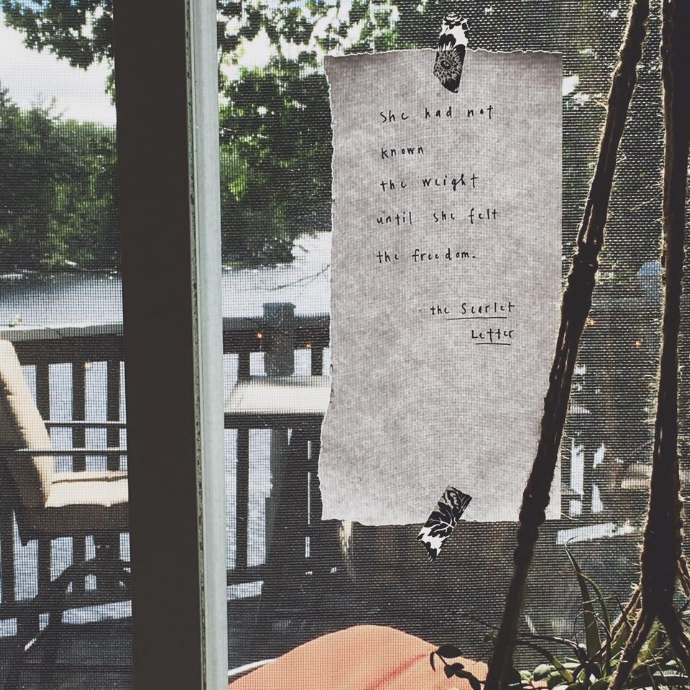 She had not
known
the weight
until she felt
the freedom.
- the Scarlet
Letter